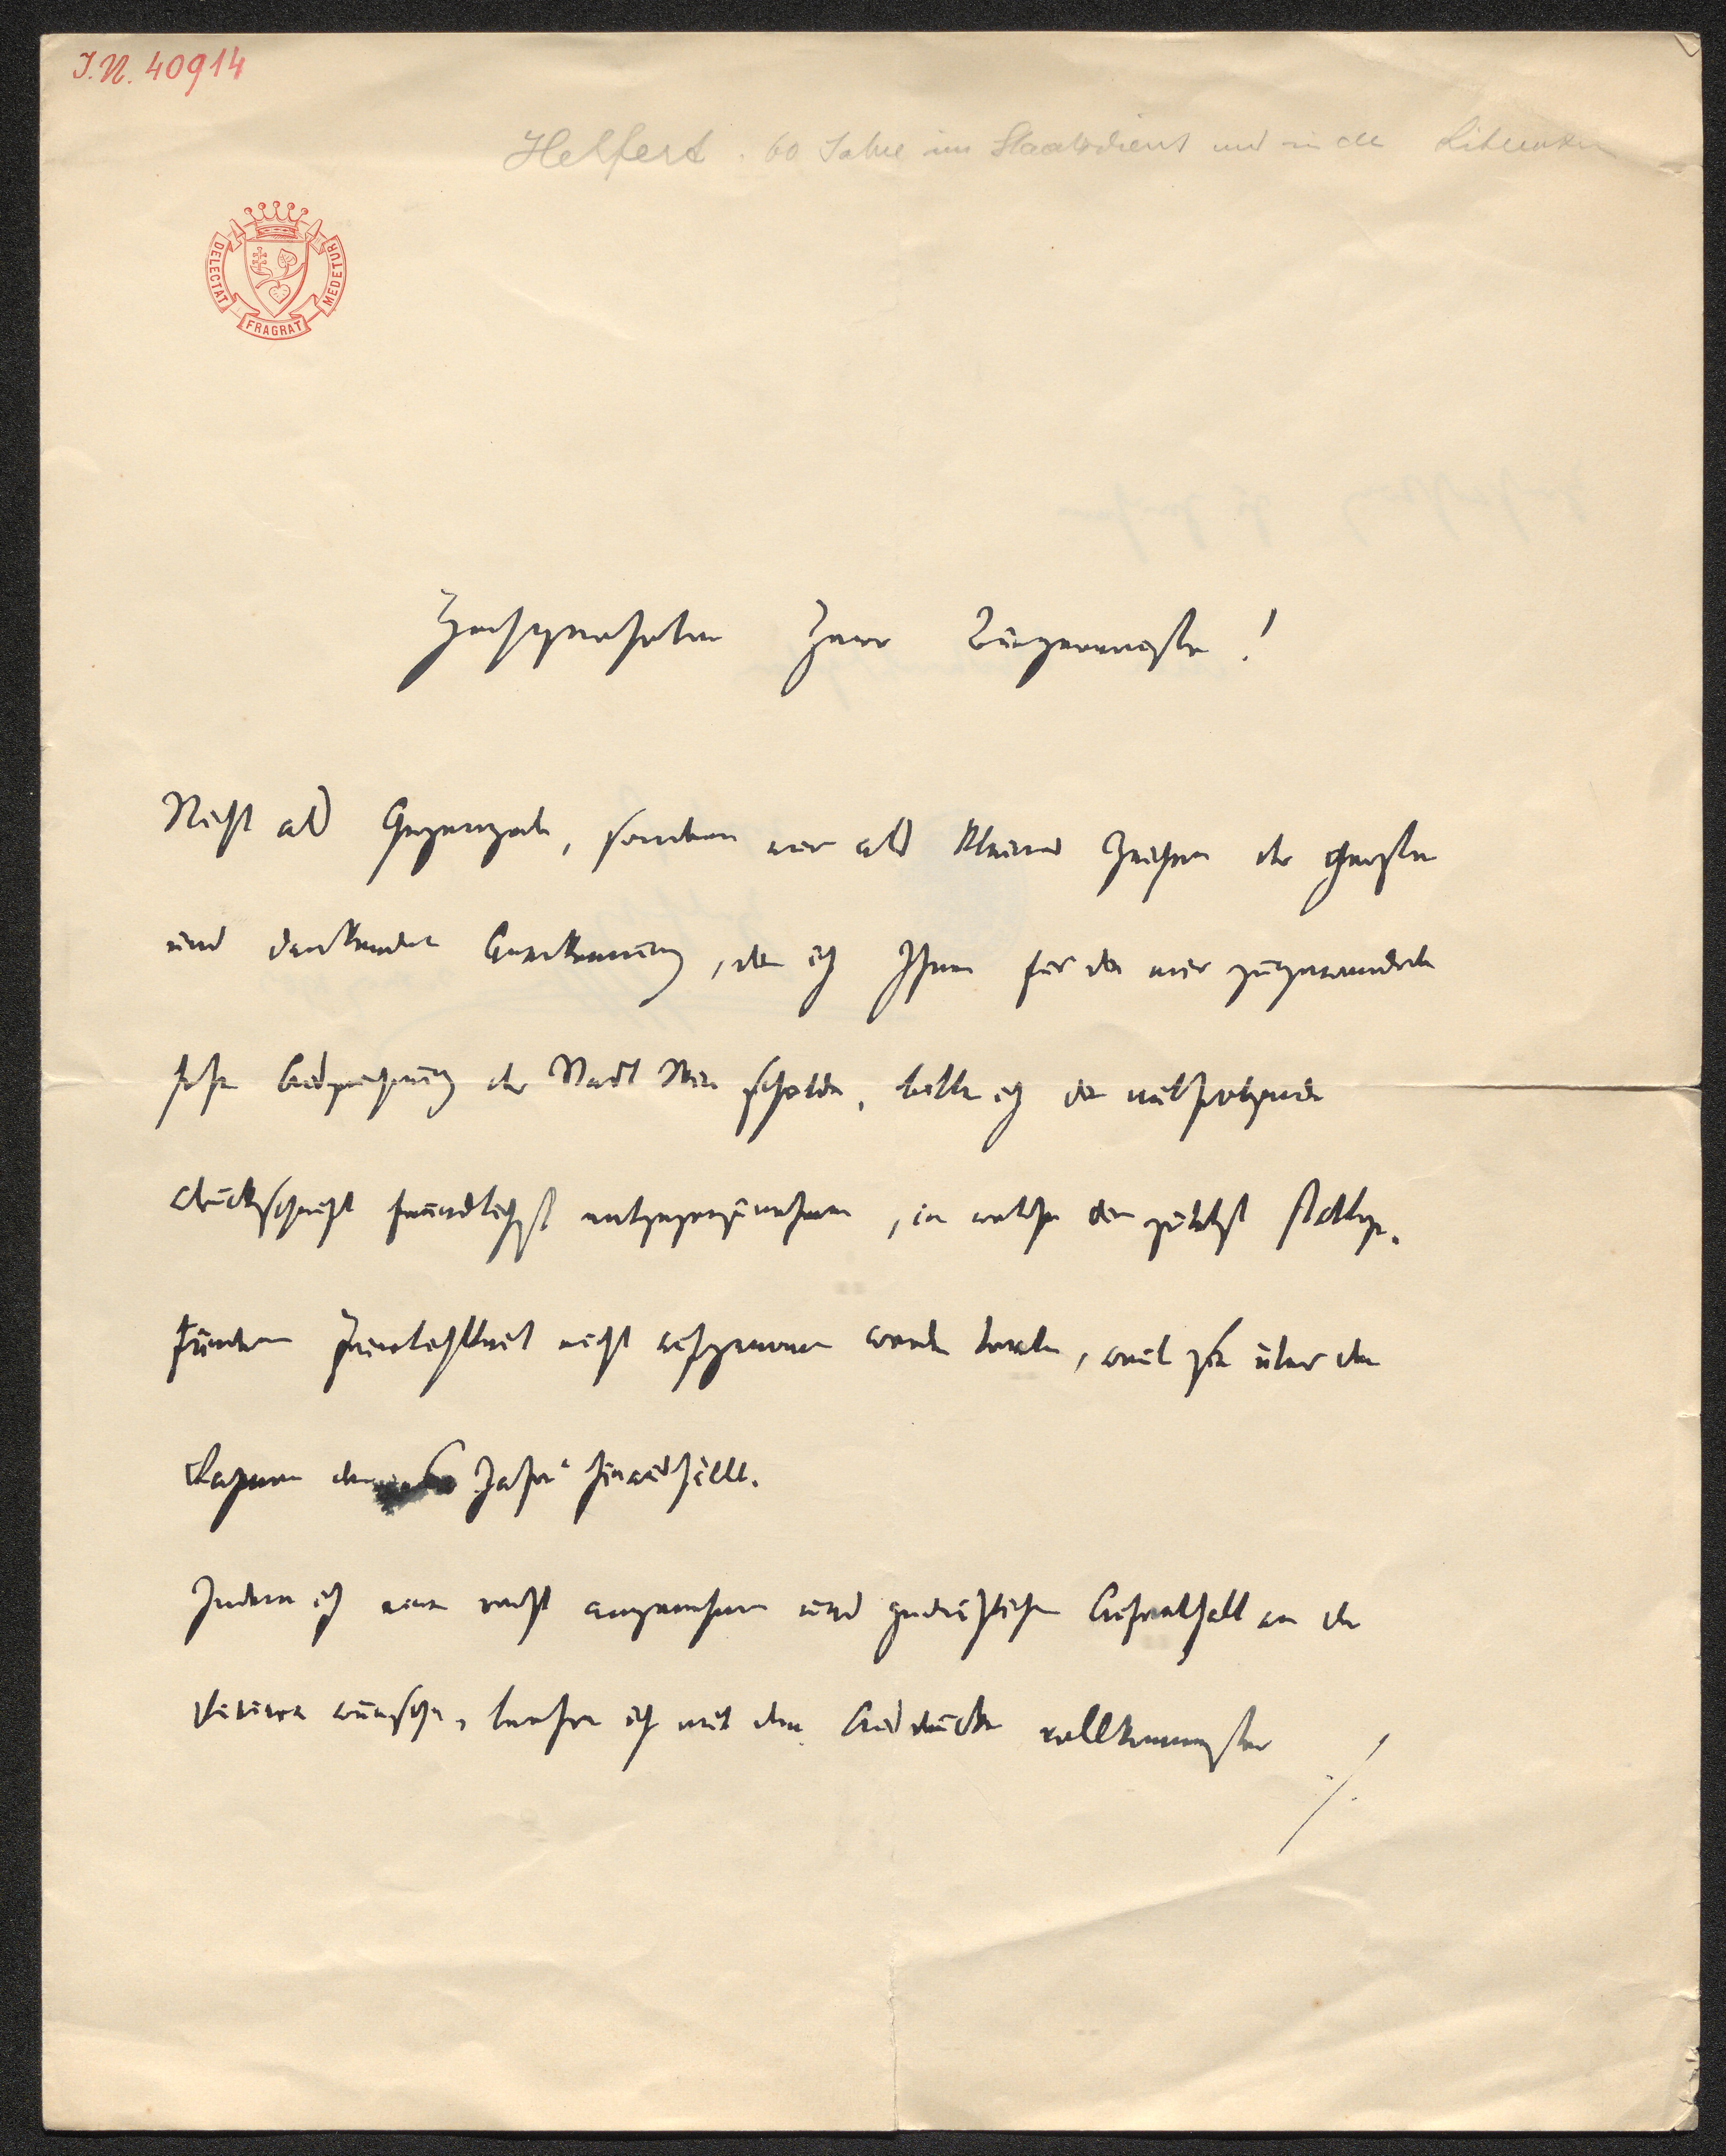 I.N. 40914
Helfert. 60 Jahre im Staatsdienst und in der Literatur
DELECTAT FRAGRAT MEDETUR
Hochgeehrter Herr Bürgermeister!
Nicht als Gegengabe, sondern nur als kleines Zeichen der
und dankenden Anerkennung, die ich Ihnen für die mir zugewendete
hohe Auszeichnung der Stadt Wien schulde, bitte ich die mitfolgende
Druckschrift freundlichst entgegenzunehmen, in welche die zuletzt stattge-
funden Feierlichkeit nicht aufgenommen werden konnte, weil sie über den
Rahmen der Jahre hinausfällt.
Indem ich einen recht angenehmen und gedeihlichen Aufenthalt an der
Riviera wünsche, beharre ich mit dem Ausdrucke vollkommenster
./.